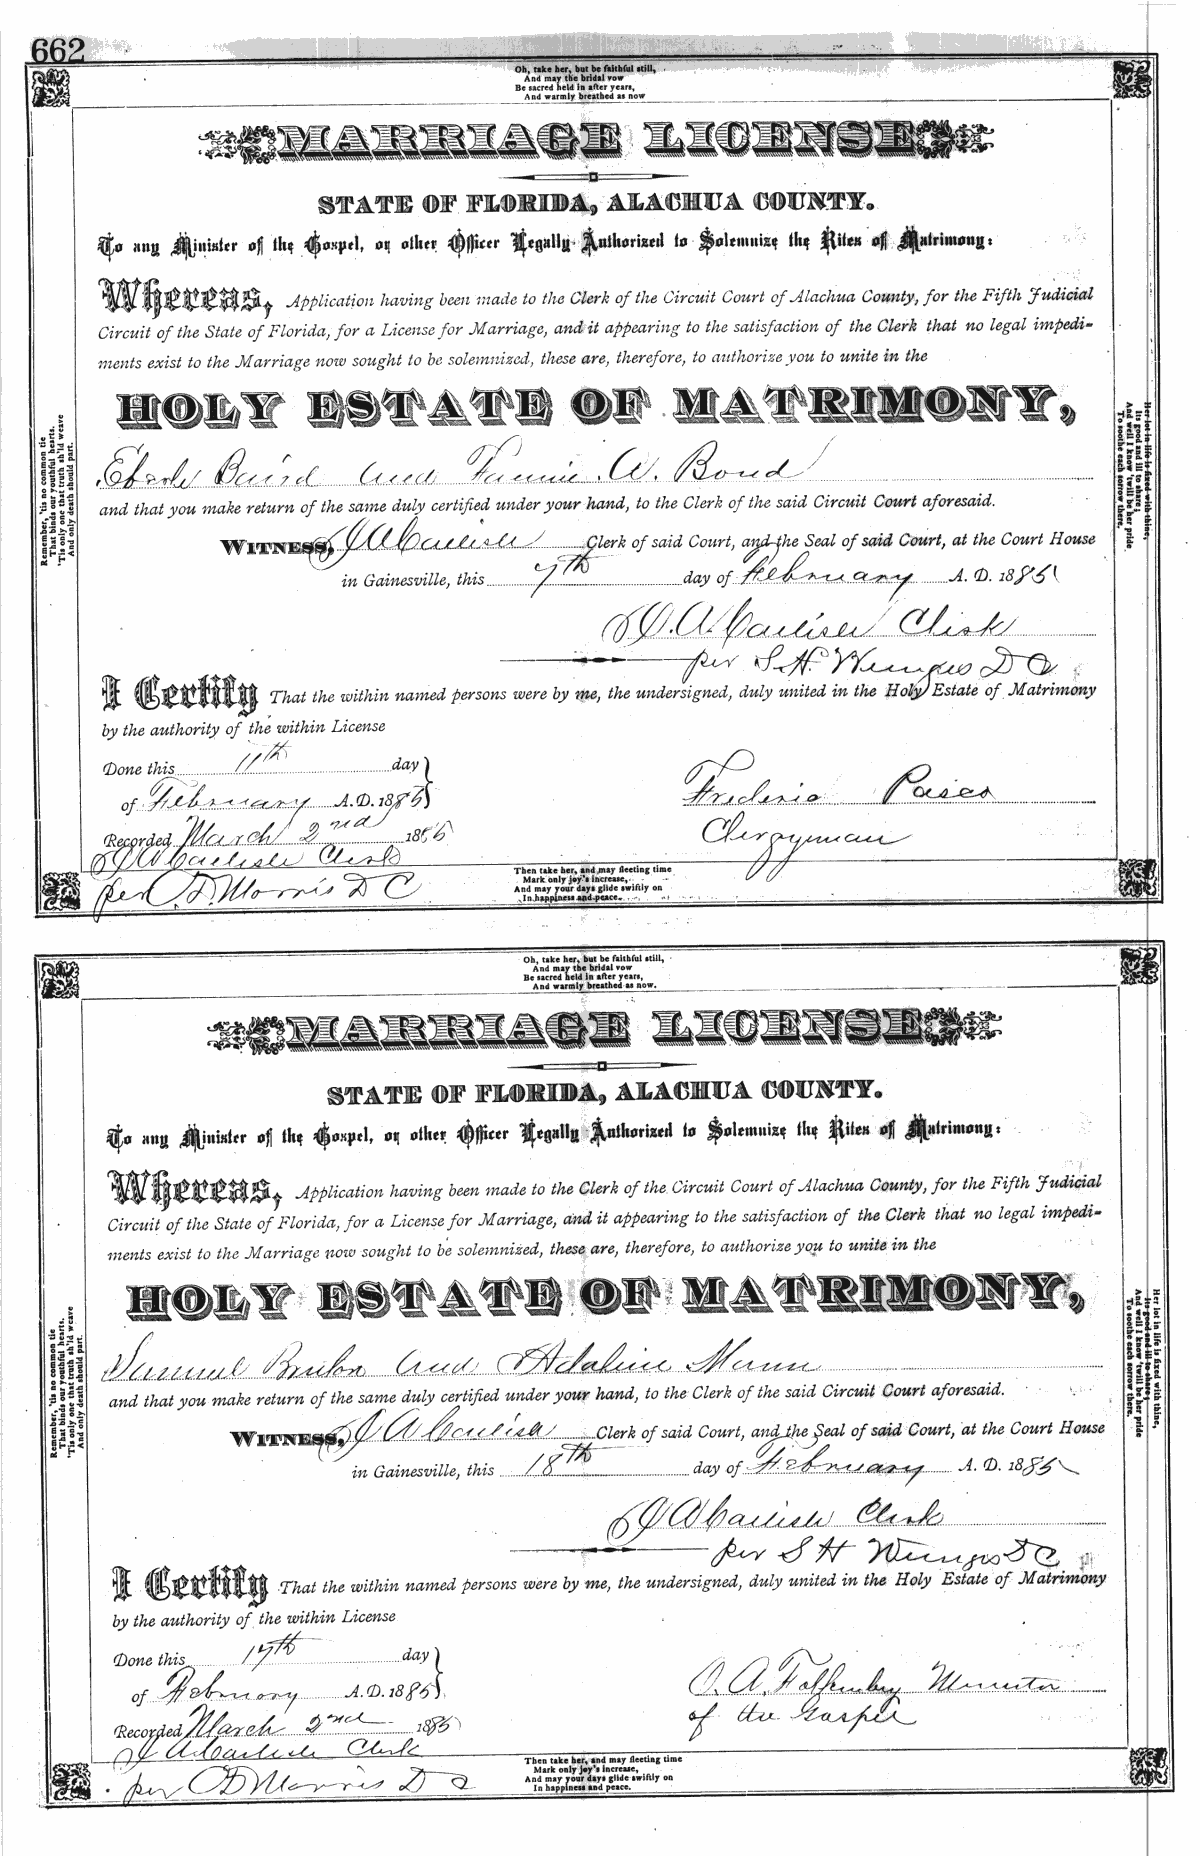 662
Oh, take her, but be faithful still,
And may the bridal vow
Be sacred held in after years,
And warmly breathed as now
MARRIAGE LICENSE
STATE OF FLORIDA, ALACHUA COUNTY.
To any Minister of the Gospel, or other Officer Legally Authorized to Solemnize the Rites of Matrimony:
Whereas, Application having been made to the Clerk of the Circuit Court of Alachua County, for the Fifth Judicial
Circuit of the State of Florida, for a License for Marriage, and it appearing to the satisfaction of the Clerk that no legal impedi-
ments exist to the Marriage now sought to be solemnized, these are, therefore, to authorize you to unite in the
HOLY ESTATE OF MATRIMONY,
Eberle Baird and Fannie A. Bond
and that you make return of the same duly certified under your hand, to the Clerk of the said Circuit Court aforesaid.
WITNESS, J A Carlisle Clerk of said Court, and the Seal of said Court, at the Court House
in Gainesville, this 7th day of February A. D. 1885
J. A. Carlisle Clerk
per S. H. Wienges D C
I Certify That the within named persons were by me, the undersigned, duly united in the Holy Estate of Matrimony
by the authority of the within License
Done this 11th day
of February A.D. 1885
Frederic Pasco
Clergyman
Recorded March 2nd 1885
J A Carlisle Clerk
per C. D. Morris D C
Remember, 'tis no common tie
That binds our youthful hearts.
'Tis only one that truth sh'ld weave
And only death should part.
Her lot in life is fixed with thine,
Its good and ill to share;
And well I know 'twill be her pride
To soothe each sorrow there.
Then take her, and may fleeting time
Mark only joy's increase,
And may your days glide swiftly on
In happiness and peace.
Oh, take her, but be faithful still,
And may the bridal vow
Be sacred held in after years,
And warmly breathed as now.
MARRIAGE LICENSE
STATE OF FLORIDA, ALACHUA COUNTY.
To any Minister of the Gospel, or other Officer Legally Authorized to Solemnize the Rites of Matrimony:
Whereas, Application having been made to the Clerk of the Circuit Court of Alachua County, for the Fifth Judicial
Circuit of the State of Florida, for a License for Marriage, and it appearing to the satisfaction of the Clerk that no legal impedi-
ments exist to the Marriage now sought to be solemnized, these are, therefore, to authorize you to unite in the
HOLY ESTATE OF MATRIMONY,
Samuel and Adaline Mann
and that you make return of the same duly certified under your hand, to the Clerk of the said Circuit Court aforesaid.
WITNESS, J A Carlisle Clerk of said Court, and the Seal of said Court, at the Court House
in Gainesville, this 18th day of February A. D. 1885
J A Carlisle Clerk
per S H Wienges D C
I Certify That the within named persons were by me, the undersigned, duly united in the Holy Estate of Matrimony
by the authority of the within License
Done this 17th day
of February A.D. 1885
O. A. Minister
of the Gospel
Recorded March 2nd 1885
J A Carlisle Clerk
per C D Morris D C
Remember, 'tis no common tie
That binds our youthful hearts.
'Tis only one that truth sh'ld weave
And only death should part.
Her lot in life is fixed with thine,
Its good and ill to share;
And well I know 'twill be her pride
To soothe each sorrow there.
Then take her, and may fleeting time
Mark only joy's increase,
And may your days glide swiftly on
In happiness and peace.